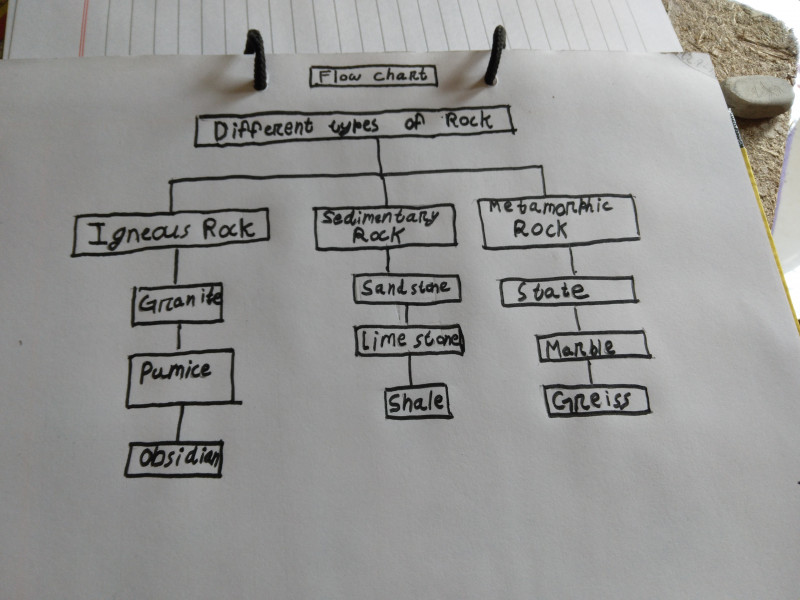 Flow chart
Different types of Rock
Igneous Rock
Granite
Pumice
Obsidian
Sedimentary
Rock
Sandstone
Lime stone
Shale
Metamorphic
Rock
State
Marble
Greiss